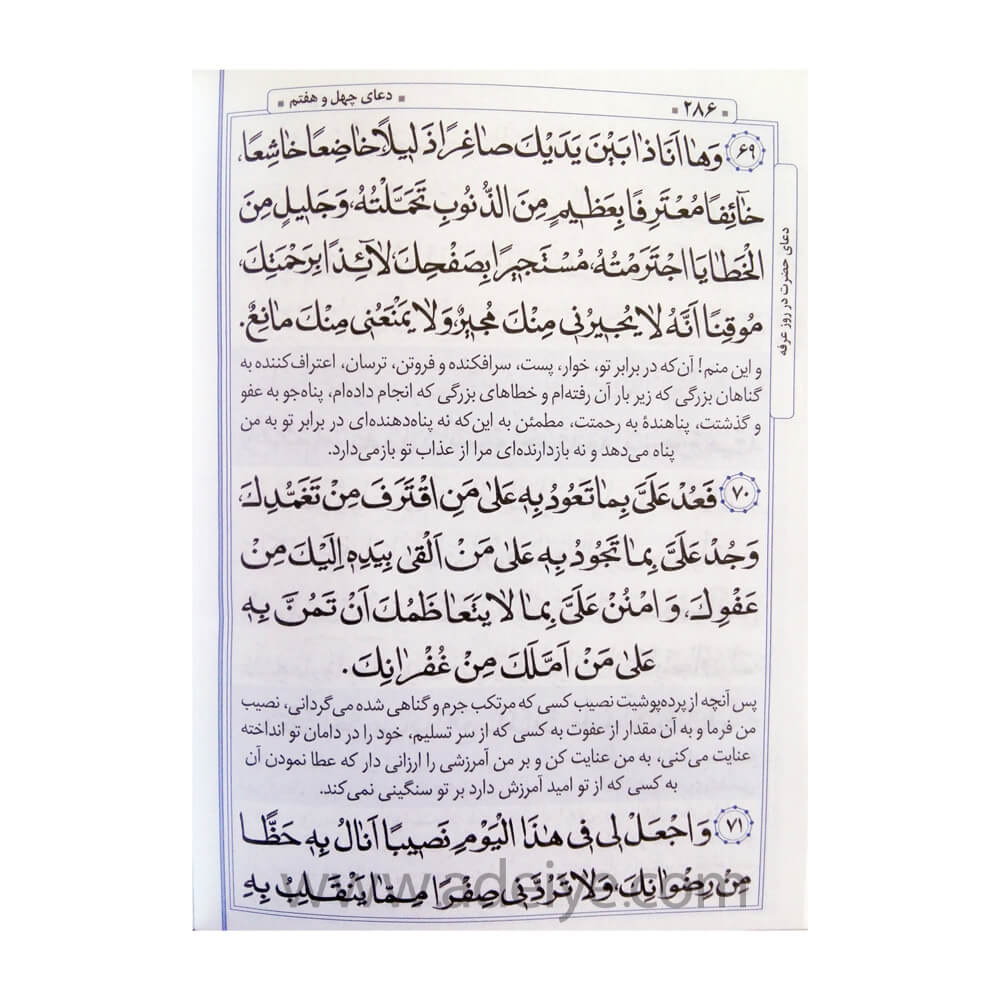 ۲۸۶
دعای چهل و هفتم
دعای حضرت در روز عرفه
۶۹ وَهٰا اَنَا ذٰا بَيْنَ يَدَيْكَ صٰاغِرًا ذَلٖيلًا خٰاضِعًا خٰاشِعًا،
خٰآئِفًا مُعْتَرِفًا بِعَظٖيمٍ مِنَ الذُّنُوبِ تَحَمَّلْتُهُ، وَجَلٖيلٍ مِنَ
الْخَطٰايَا اجْتَرَمْتُهُ، مُسْتَجٖيرًا بِصَفْحِكَ، لٰآئِذًا بِرَحْمَتِكَ،
مُوقِنًا اَنَّهُ لٰا يُجٖيرُنٖي مِنْكَ مُجٖيرٌ، وَلٰا يَمْنَعُنٖي مِنْكَ مٰانِعٌ.
و این منم! آن‌که در برابر تو، خوار، پست، سرافکنده و فروتن، ترسان، اعتراف‌کننده به
گناهان بزرگی که زیر بار آن رفته‌ام و خطاهای بزرگی که انجام داده‌ام، پناه‌جو به عفو
و گذشتت، پناهندهٔ به رحمتت، مطمئن به این‌که نه پناه‌دهنده‌ای در برابر تو به من
پناه می‌دهد و نه بازدارنده‌ای مرا از عذاب تو بازمی‌دارد.
۷۰ فَعُدْ عَلَيَّ بِمٰا تَعُودُ بِهٖ عَلىٰ مَنِ اقْتَرَفَ مِنْ تَغَمُّدِكَ،
وَجُدْ عَلَيَّ بِمٰا تَجُودُ بِهٖ عَلىٰ مَنْ اَلْقىٰ بِيَدِهٖ اِلَيْكَ مِنْ
عَفْوِكَ، وَ امْنُنْ عَلَيَّ بِمٰا لٰا يَتَعٰاظَمُكَ اَنْ تَمُنَّ بِهٖ
عَلىٰ مَنْ اَمَّلَكَ مِنْ غُفْرٰانِكَ.
پس آنچه از پرده‌پوشیت نصیب کسی که مرتکب جرم و گناهی شده می‌گردانی، نصیب
من فرما و به آن مقدار از عفوت به کسی که از سر تسلیم، خود را در دامان تو انداخته
عنایت می‌کنی، به من عنایت کن و بر من آمرزشی را ارزانی دار که عطا نمودن آن
به کسی که از تو امید آمرزش دارد بر تو سنگینی نمی‌کند.
۷۱ وَ اجْعَلْ لٖي فٖي هٰذَا الْيَوْمِ نَصٖيبًا اَنٰالُ بِهٖ حَظًّا
مِنْ رِضْوٰانِكَ، وَلٰا تَرُدَّنٖي صِفْرًا مِمّٰا يَنْقَلِبُ بِهٖ
www.adeiye.com